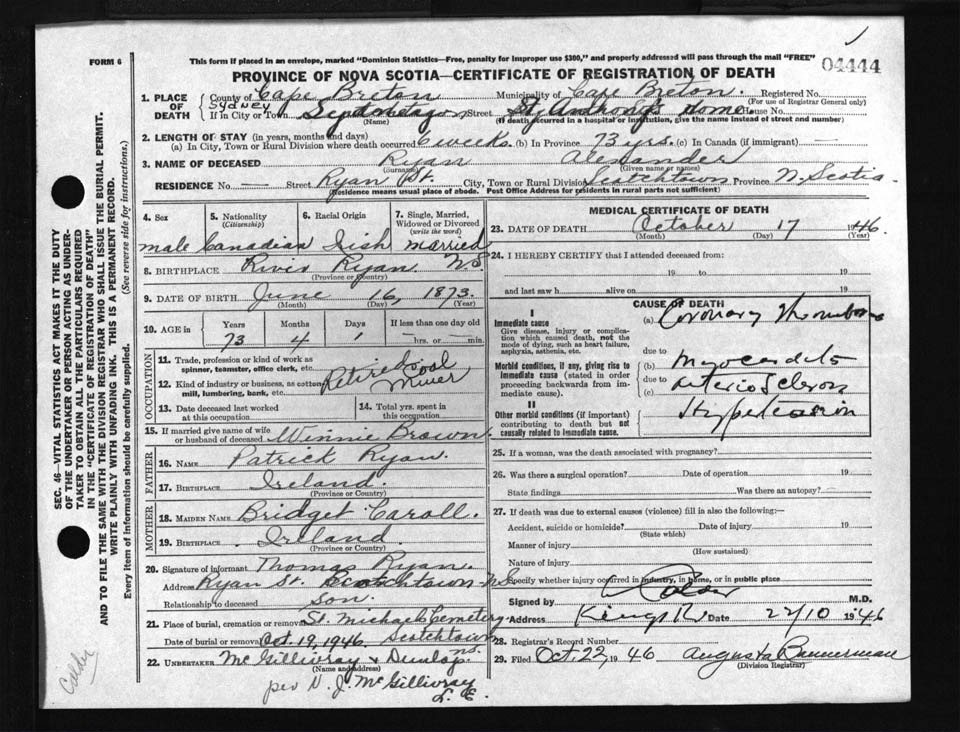 FORM 6
This form if placed in an envelope, marked "Dominion Statistics—Free, penalty for improper use $300," and properly addressed will pass through the mail "FREE"
04444
PROVINCE OF NOVA SCOTIA—CERTIFICATE OF REGISTRATION OF DEATH
1. PLACE OF DEATH County of Cape Breton Municipality of Cape Breton. Registered No.
(For use of Registrar General only)
If in City or Town Sydney Street House No.
(Name) (If death occurred in a hospital or institution, give the name instead of street and number)
2. LENGTH OF STAY (in years, months and days)
(a) In City, Town or Rural Division where death occurred 6 weeks. (b) In Province 73 yrs. (c) In Canada (if immigrant) —
3. NAME OF DECEASED Ryan Alexander
(Surname) (Given name or names)
RESIDENCE No. — Street Ryan St. City, Town or Rural Division Scotchtown Province N. Scotia.
(Residence means usual place of abode. Post Office Address for residents in rural parts not sufficient)
4. Sex 5. Nationality (Citizenship) 6. Racial Origin 7. Single, Married, Widowed or Divorced (write the word)
male Canadian Irish married
8. BIRTHPLACE River Ryan. N.S.
(Province or Country)
9. DATE OF BIRTH June 16, 1873.
(Month) (Day) (Year)
10. AGE in Years Months Days If less than one day old
73 4 1 hrs. or min.
OCCUPATION
11. Trade, profession or kind of work as spinner, teamster, office clerk, etc.
Retired Coal Miner
12. Kind of industry or business, as cotton mill, lumbering, bank, etc.
13. Date deceased last worked at this occupation
14. Total yrs. spent in this occupation
15. If married give name of wife or husband of deceased Winnie Brown
FATHER
16. NAME Patrick Ryan.
17. BIRTHPLACE Ireland.
(Province or Country)
MOTHER
18. MAIDEN NAME Bridget Caroll.
19. BIRTHPLACE Ireland
(Province or Country)
20. Signature of informant Thomas Ryan.
Address Ryan St. Scotchtown N.S.
Relationship to deceased son.
21. Place of burial, cremation or removal St. Michaels Cemetery
Date of burial or removal Oct. 19, 1946 Scotchtown
N.S.
22. UNDERTAKER McGillivray & Dunlap
(Name and address)
per N. J. McGillivray
L. E.
MEDICAL CERTIFICATE OF DEATH
23. DATE OF DEATH October 17 1946.
(Month) (Day) (Year)
24. I HEREBY CERTIFY that I attended deceased from:
19 to 19
and last saw h alive on 19
CAUSE OF DEATH
I
Immediate cause
Give disease, injury or complication which caused death, not the mode of dying, such as heart failure, asphyxia, asthenia, etc.
(a) Coronary Thrombosis
due to
Morbid conditions, if any, giving rise to immediate cause (stated in order proceeding backwards from immediate cause).
(b) Myocarditis
due to
(c) Arteriosclerosis
II
Other morbid conditions (if important) contributing to death but not causally related to immediate cause.
Hypertension
25. If a woman, was the death associated with pregnancy?
26. Was there a surgical operation? Date of operation 19
State findings Was there an autopsy?
27. If death was due to external causes (violence) fill in also the following:—
Accident, suicide or homicide? Date of injury 19
(State which)
Manner of injury
(How sustained)
Nature of injury
Specify whether injury occurred in industry, in home, or in public place
Signed by M.D.
Address Date 22/10 1946
28. Registrar's Record Number
29. Filed Oct. 22, 1946 Augusta Bannerman
(Division Registrar)
SEC. 46—VITAL STATISTICS ACT MAKES IT THE DUTY
OF THE UNDERTAKER OR PERSON ACTING AS UNDER-
TAKER TO OBTAIN ALL THE PARTICULARS REQUIRED
IN THE "CERTIFICATE OF REGISTRATION OF DEATH"
AND TO FILE THE SAME WITH THE DIVISION REGISTRAR WHO SHALL ISSUE THE BURIAL PERMIT.
WRITE PLAINLY WITH UNFADING INK. THIS IS A PERMANENT RECORD.
Every item of information should be carefully supplied. (See reverse side for instructions.)